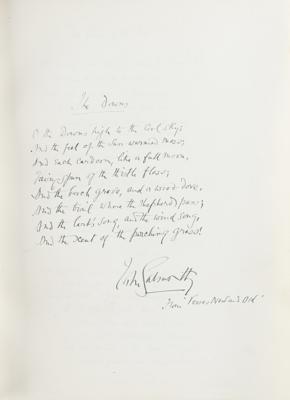 The Downs
O the Downs high to the cool sky;
And the feel of the sun-warmed moss;
And each cardoon, like a full moon,
Fairy-spun of the thistle floss;
And the beech grove, and a wood-dove,
And the trail where the shepherds pass;
And the lark's song, and the wind-song,
And the scent of the parching grass!
John Galsworthy
From 'Verses New and Old'